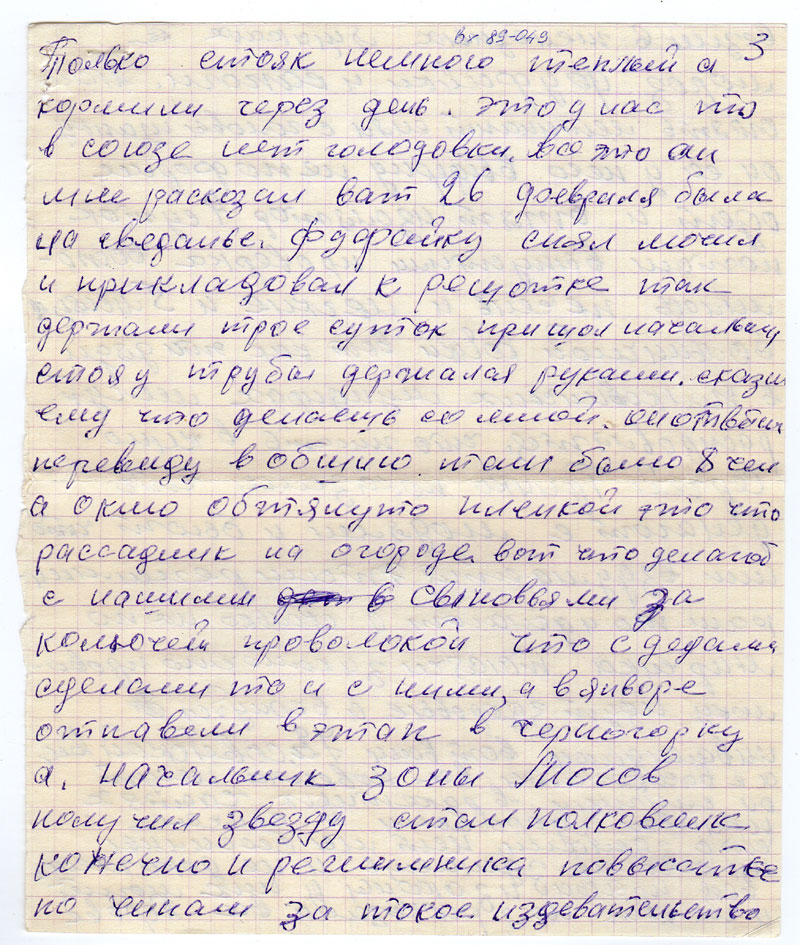 Вх 89-049
3
Только стояк немного теплый а
кормили через день. это у нас что
в союзе нет голодовки. все это он
мне расказал вот 26 февраля была
на сведанье. Фуфайку снял мочил
и прикладовал к решотке так
держали трое суток пришол начальник
стоя у трубы держалая руками. сказал
ему что делаешь со мной. он ответил
переведу в общию там было 8 чел
а окно обтянуто пленкой это что
рассадник на огороде вот что делают
с нашими сыновьями за
колючей проволокой что с дедами
сделали то и с ними, а в янворе
отправели в этап в черногорку
а. начальник зоны Мосов
получил звезду стал полковник
конечно и режимника повысят
по чинам за токое издевательство